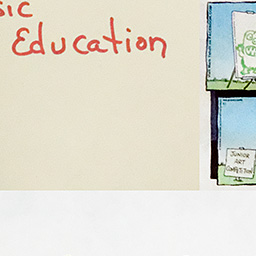 sic
Education
JUNIOR
ART
COMPETITION